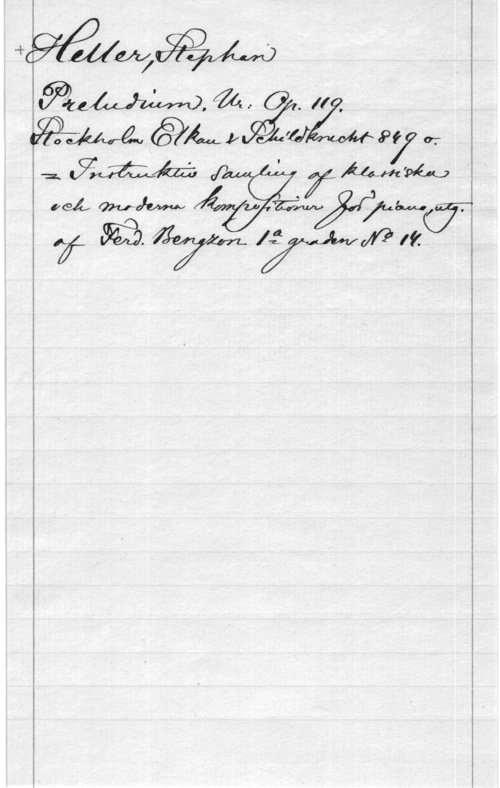 + Heller, Stephen
Preludium. Ur: Op. 119.
Stockholm Elkan & Schildknecht 849 o.
= Instruktiv Samling af klassiska
och moderna kompositioner för piano, utg.
af Ferd. Bengzon 1a graden No 14.